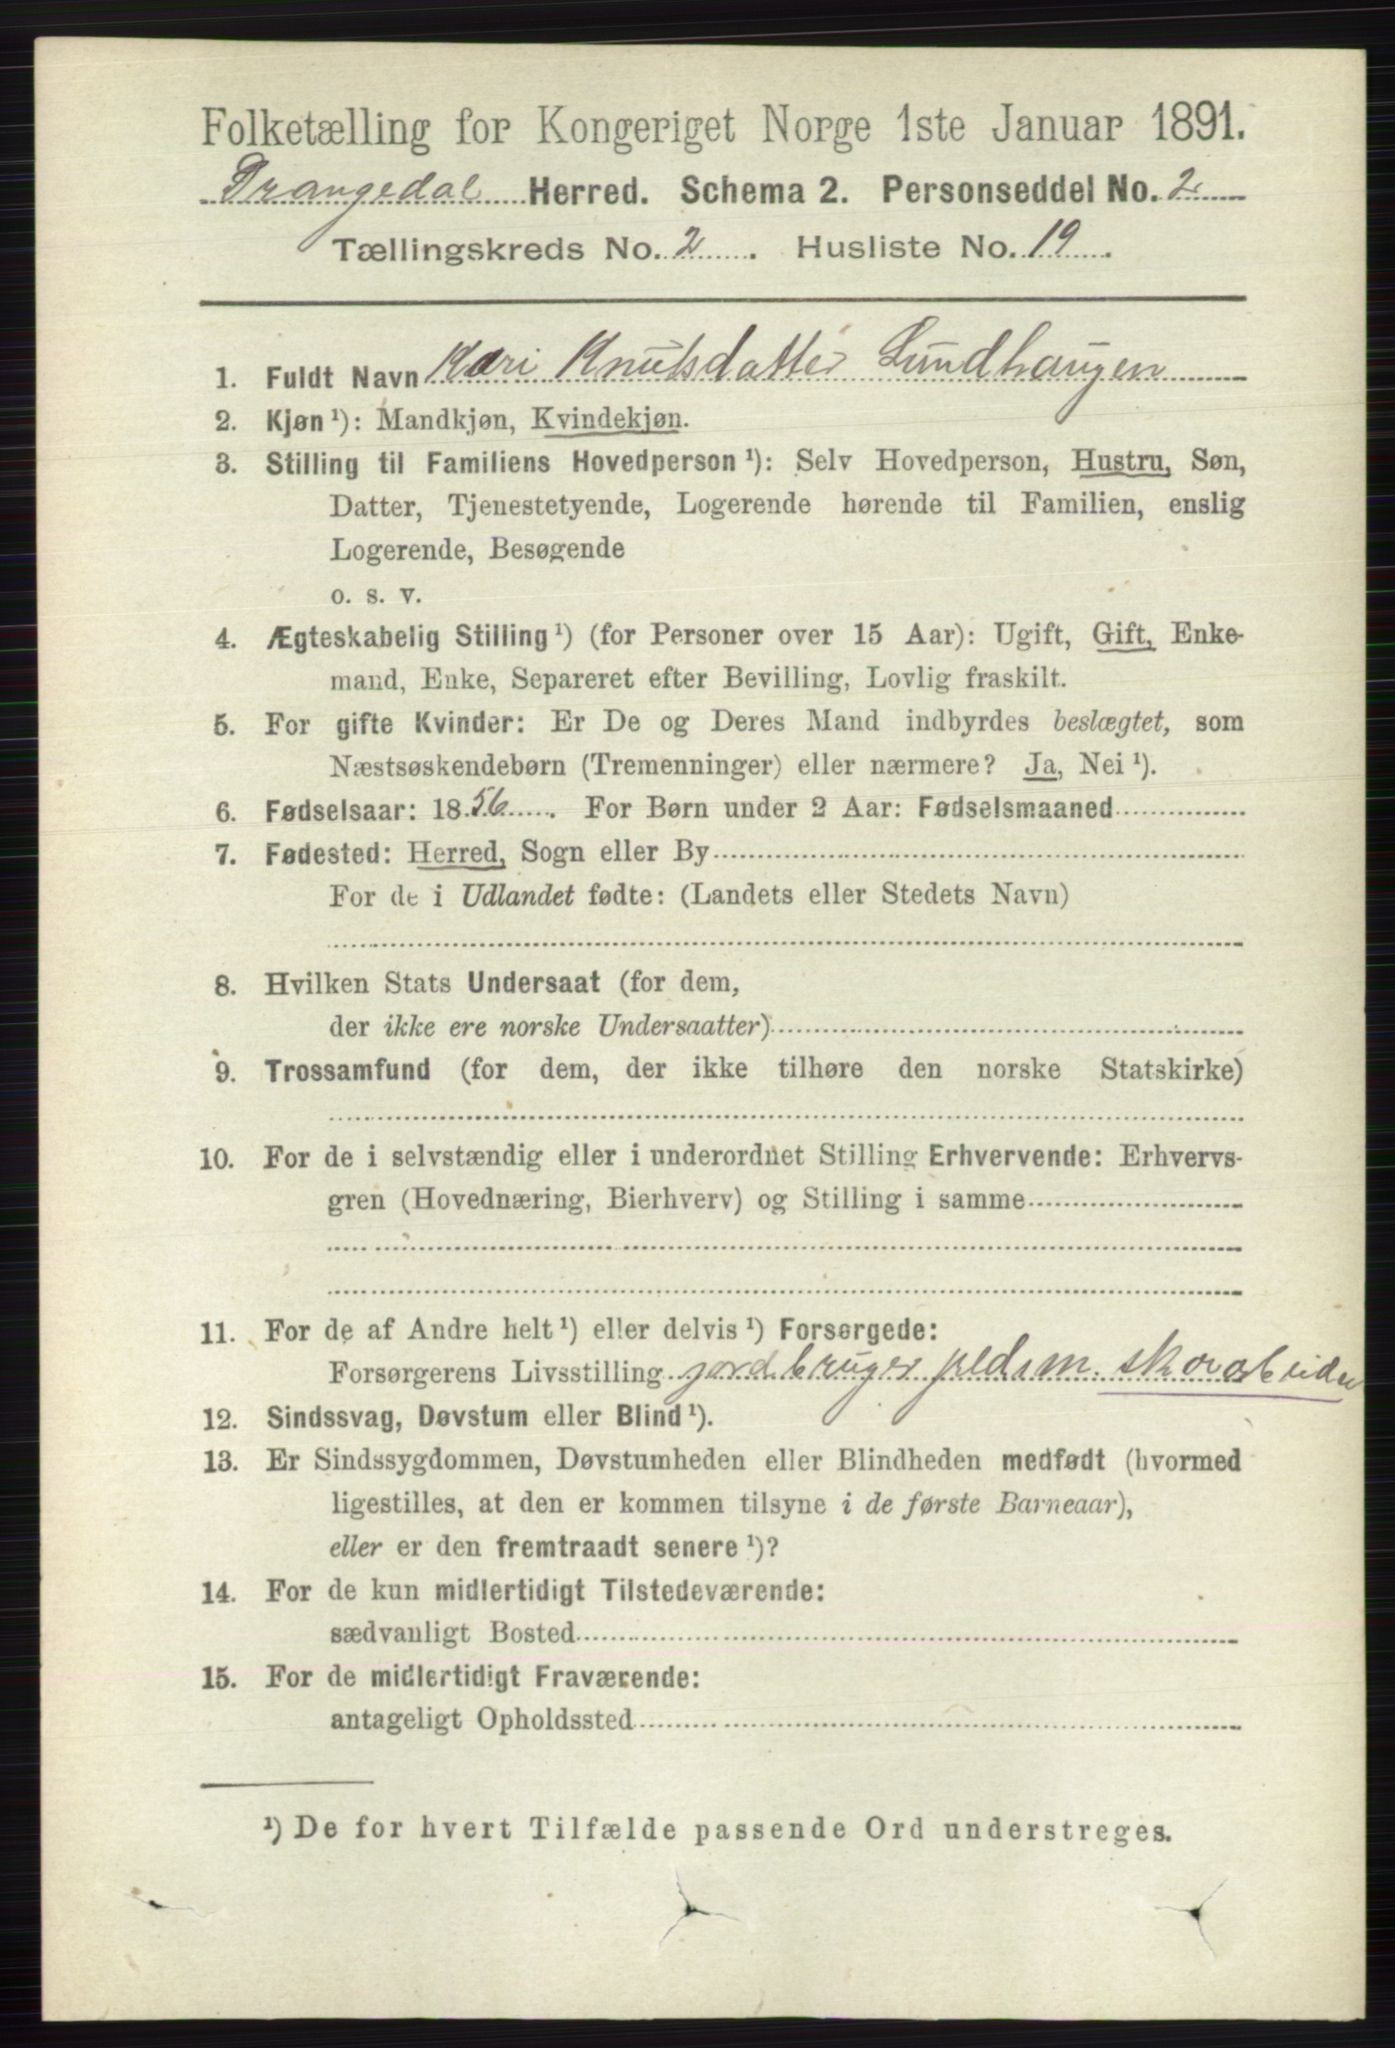 Folketælling for Kongeriget Norge 1ste Januar 1891.
Drangedal Herred. Schema 2. Personseddel No. 2
Tællingskreds No. 2. Husliste No. 19.
1. Fuldt Navn Kari Knutsdatter Lundhaugen
2. Kjøn ¹): Mandkjøn, Kvindekjøn.
3. Stilling til Familiens Hovedperson ¹): Selv Hovedperson, Hustru, Søn,
Datter, Tjenestetyende, Logerende hørende til Familien, enslig
Logerende, Besøgende
o. s. v.
4. Ægteskabelig Stilling ¹) (for Personer over 15 Aar): Ugift, Gift, Enke-
mand, Enke, Separeret efter Bevilling, Lovlig fraskilt.
5. For gifte Kvinder: Er De og Deres Mand indbyrdes beslægtet, som
Næstsøskendebørn (Tremenninger) eller nærmere? Ja, Nei ¹).
6. Fødselsaar: 1856. For Børn under 2 Aar: Fødselsmaaned
7. Fødested: Herred, Sogn eller By
For de i Udlandet fødte: (Landets eller Stedets Navn)
8. Hvilken Stats Undersaat (for dem,
der ikke ere norske Undersaatter)
9. Trossamfund (for dem, der ikke tilhøre den norske Statskirke)
10. For de i selvstændig eller i underordnet Stilling Erhvervende: Erhvervs-
gren (Hovednæring, Bierhverv) og Stilling i samme
11. For de af Andre helt ¹) eller delvis ¹) Forsørgede:
Forsørgerens Livsstilling jordbruger pldsm. skovarbeider
12. Sindssvag, Døvstum eller Blind ¹).
13. Er Sindssygdommen, Døvstumheden eller Blindheden medfødt (hvormed
ligestilles, at den er kommen tilsyne i de første Barneaar),
eller er den fremtraadt senere ¹)?
14. For de kun midlertidigt Tilstedeværende:
sædvanligt Bosted
15. For de midlertidigt Fraværende:
antageligt Opholdssted
¹) De for hvert Tilfælde passende Ord understreges.